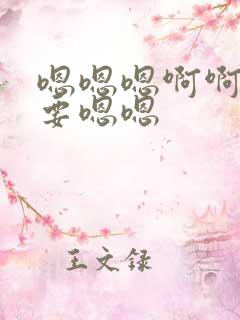 嗯嗯嗯啊啊
要嗯嗯
王文录